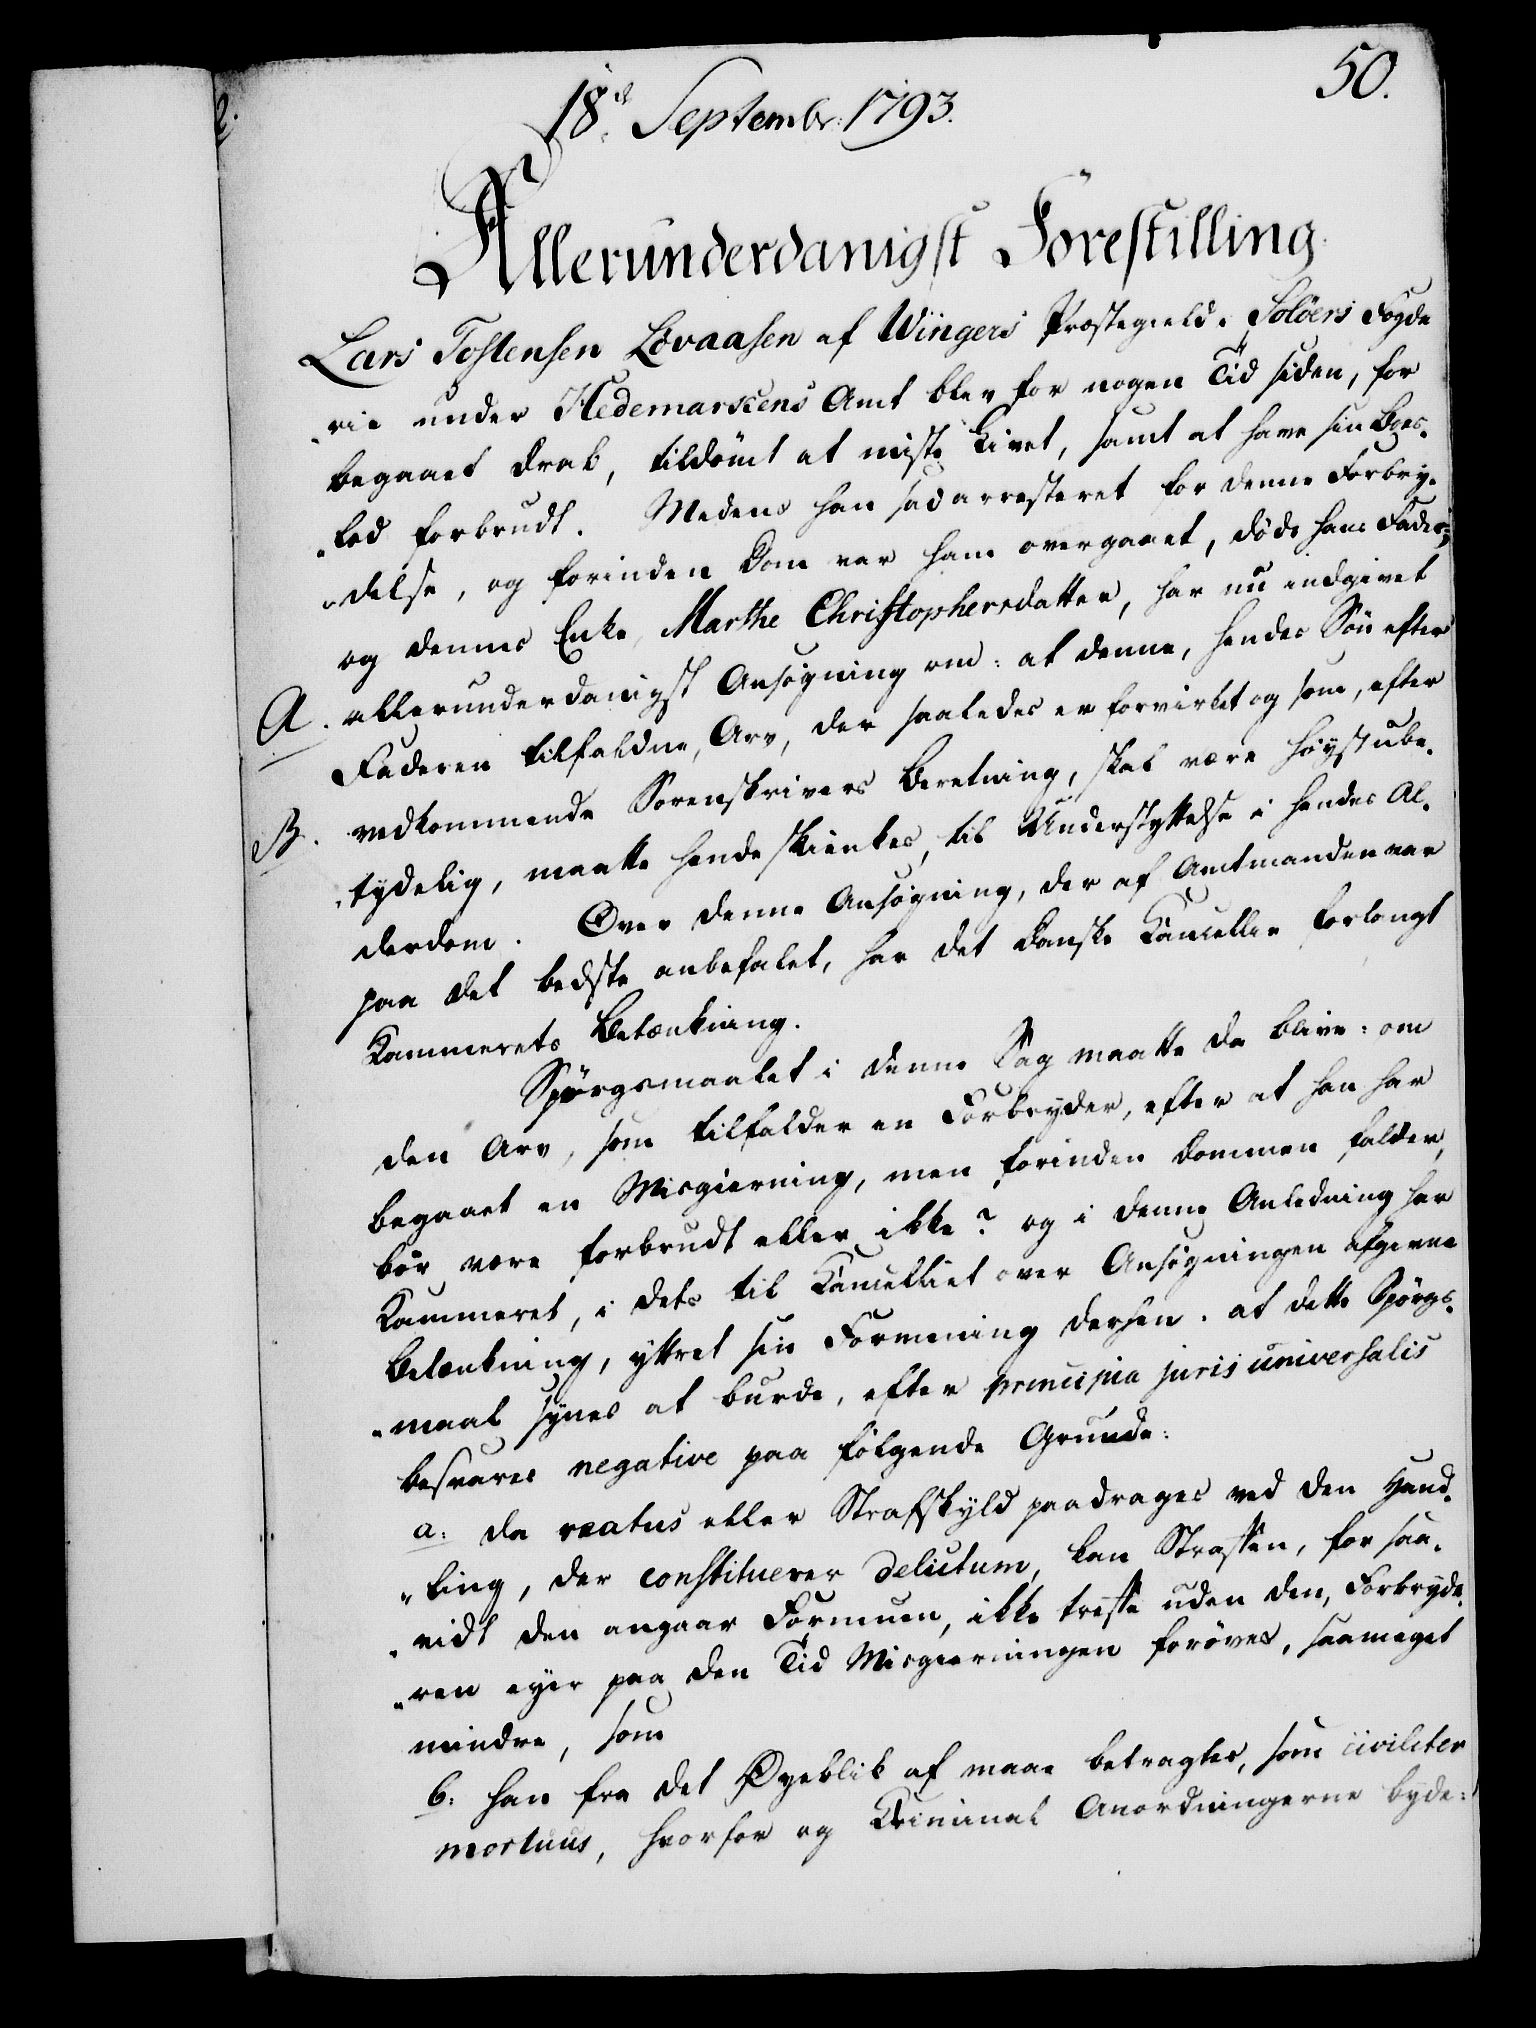 50.
18d. Septembr: 1793.
Allerunderdanigst Forestilling.
Lars Tostensen Lövaasen af Wingers Præstegield, Solöers Fogde
„rie under Hedemarkens Amt blev for nogen Tid siden, for
begaaet Drab, tildömt at miste Livet, samt at have sin Boes„
„lod forbrudt. Medens han sad arresteret for denne Forbry„
„delse, og forinden Dom var ham overgaaet, döde hans Fader;
og dennes Enke, Marthe Christophersdatter, har nu indgivet
A. allerunderdanigst Ansögning om: at denne, hendes Sön efter
Faderen tilfaldne, Arv, der saaledes er forvirket og som, efter
B. vedkommende Sorenskrivers Beretning, skal være höyst ube„
„tydelig, maatte hende skienkes, til Understyttelse i hendes Al„
derdom. Over denne Ansögning, der af Amtmanden var
paa det bedste anbefalet, har det danske Cancellie forlangt
Kammerets Betænkning.
Spörgsmaalet i denne Sag maatte da blive: om
den Arv, som tilfalder en Forbryder, efter at han har
begaaet en Misgierning, men forinden Dommen falder,
bör være forbrudt eller ikke? og i denne Anledning har
Kammeret, i dets til Cancelliet over Ansögningen afgivne
Betænkning, yttret sin Formening derhen: at dette Spörgs„
„maal synes at burde, efter principia juris universalis
besvares negative paa fölgende Grunde:
a: da reatus eller Strafskyld paadrages ved den Hand„
„ling, der constituerer delictum, kan Straffen, for saa„
„vidt den angaar Formuen, ikke treffe uden den, Forbryde„
„ren eyer paa den Tid Misgierningen foröves, saameget
mindre, som
b: han fra det Öyeblik af maae betragtes, som civiliter
mortuus, hvorfor og Criminal Anordningerne byde: